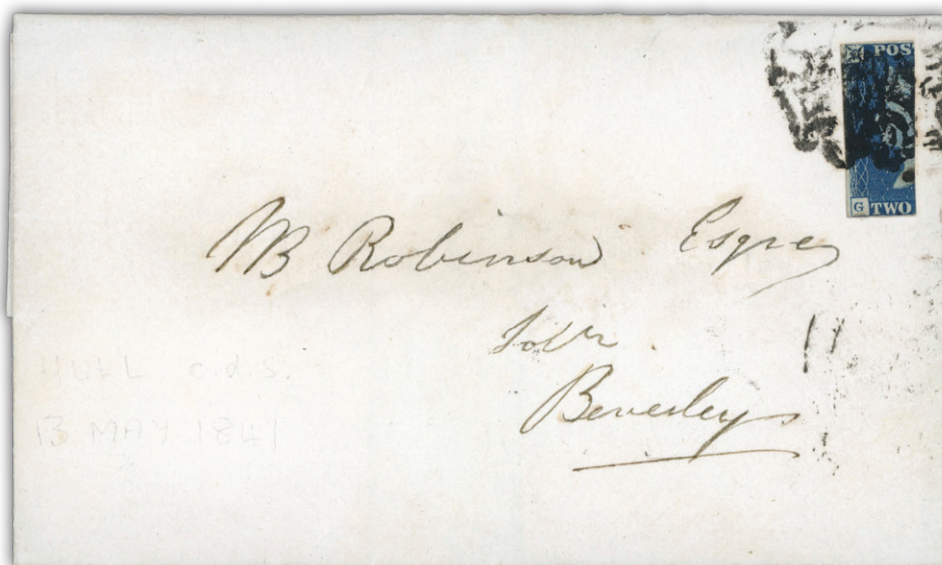 POS
G TWO
WB Robinson Esqre
Solr
Beverley
HULL c.d.s.
13 MAY 1841